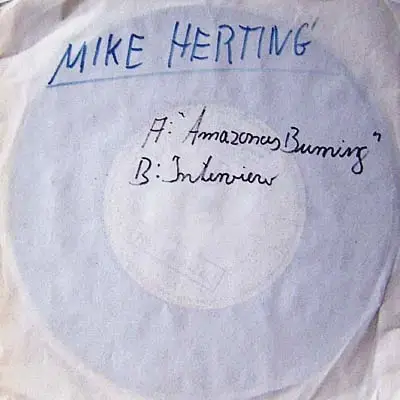 MIKE HERTING
A: "Amazonas Burning"
B: Interview